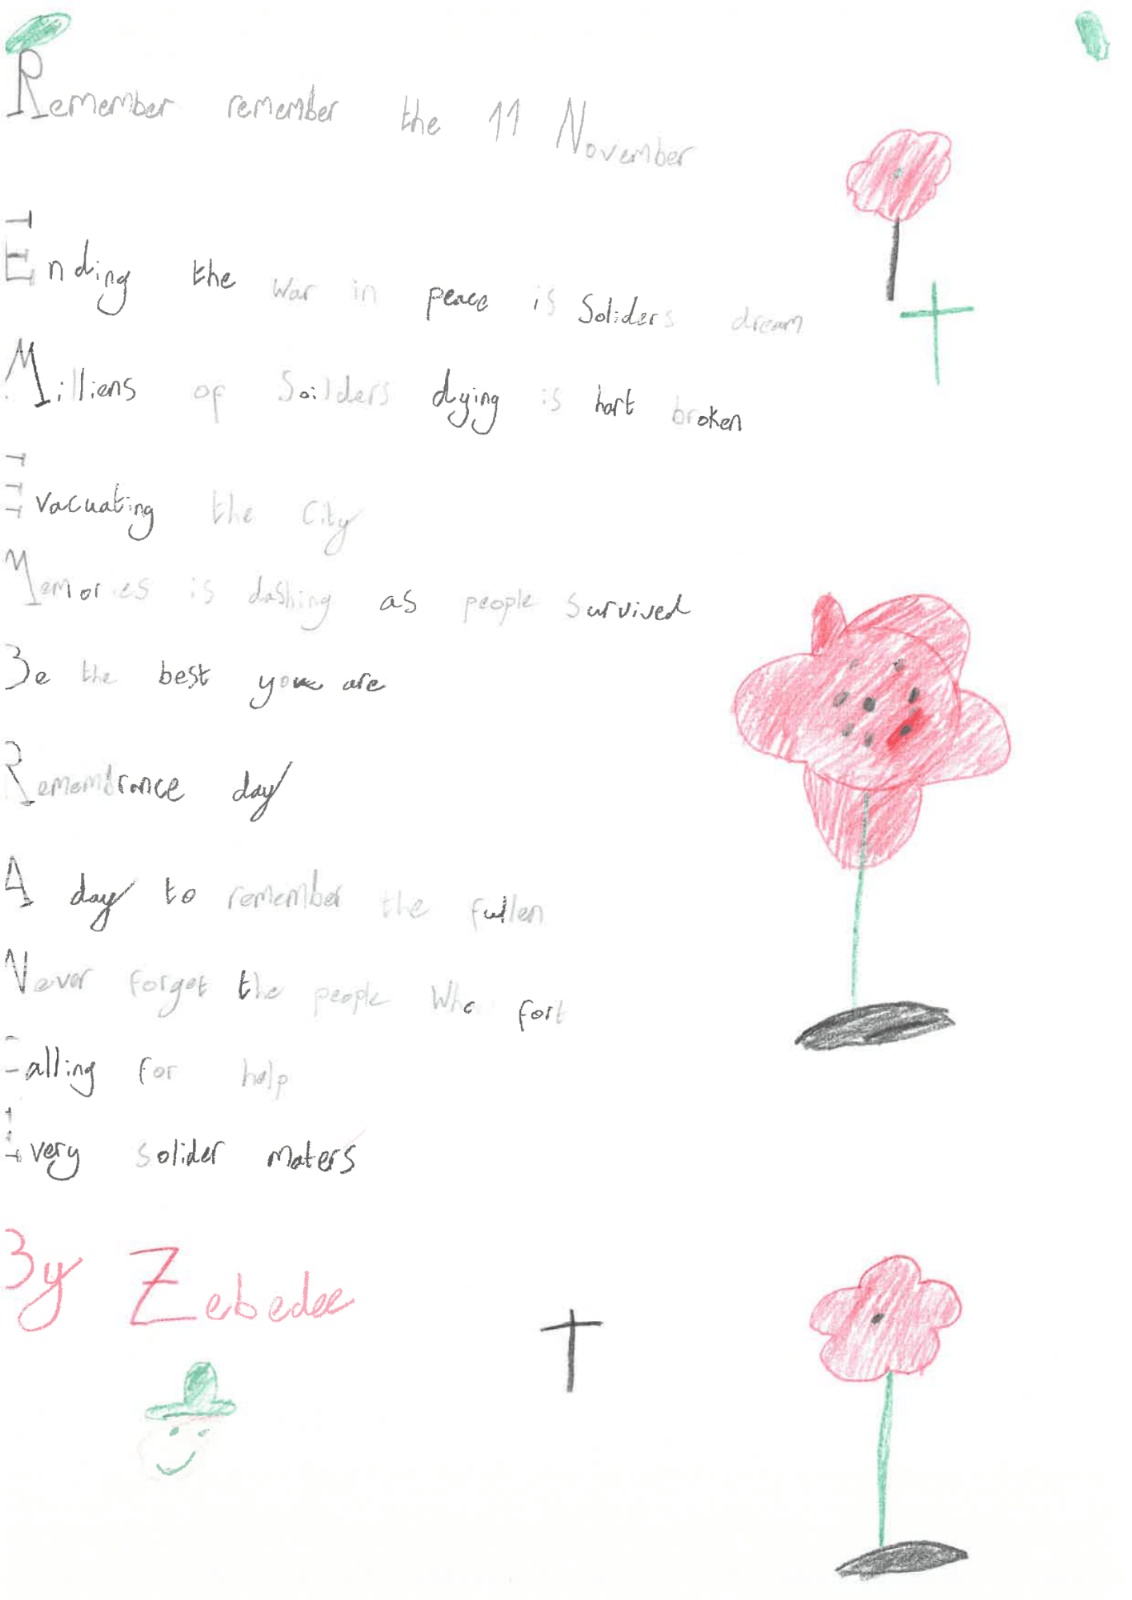 Remember remember the 11 November
Ending the war in peace is Soliders dream
Milliens of Soilders dying is hart broken
Evacuating the City
Memories is dashing as people survived
Be the best you are
Remembrance day
A day to remember the fullen
Never forget the people who fort
Calling for help
Every solider maters
By Zebedee